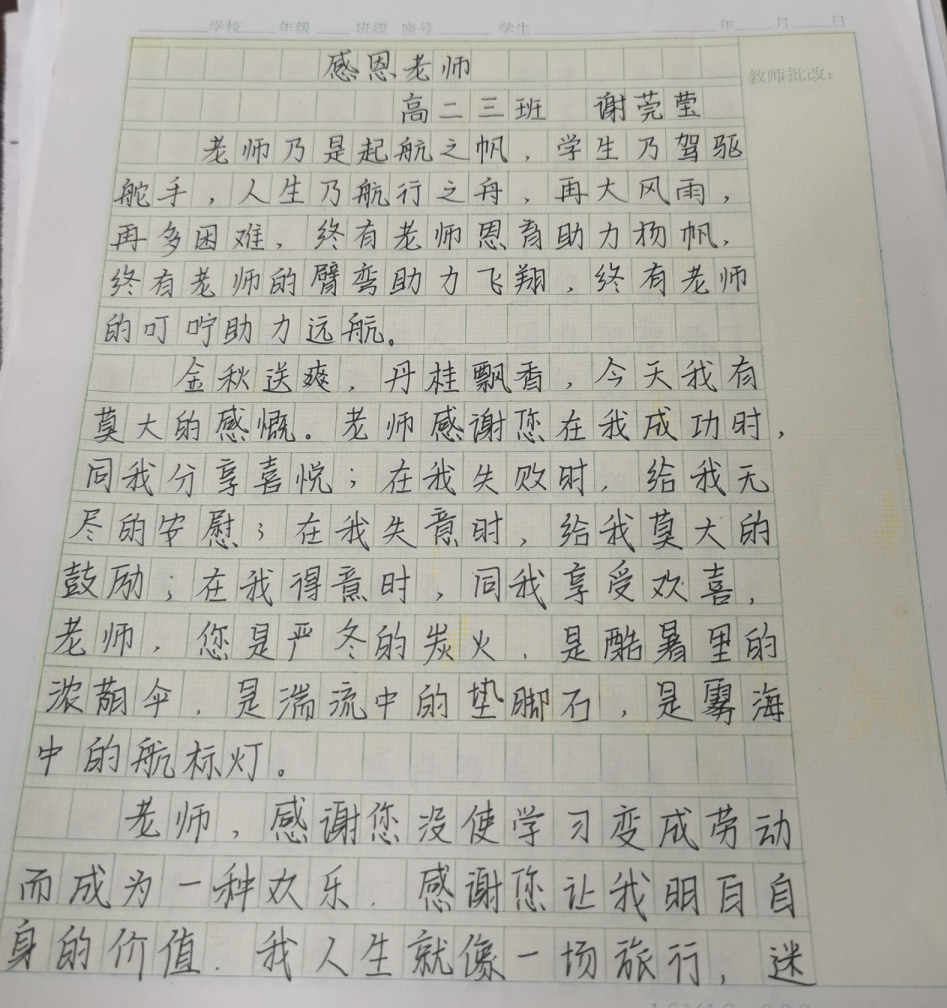 学校 年级 班级 座号 学生 年 月 日
教师批改：
感恩老师
高二三班 谢莞莹
老师乃是起航之帆，学生乃驾驱
舵手，人生乃航行之舟，再大风雨，
再多困难，终有老师恩育助力扬帆，
终有老师的臂弯助力飞翔，终有老师
的叮咛助力远航。
金秋送爽，丹桂飘香，今天我有
莫大的感慨。老师感谢您在我成功时，
同我分享喜悦；在我失败时，给我无
尽的安慰；在我失意时，给我莫大的
鼓励；在我得意时，同我享受欢喜，
老师，您是严冬的炭火，是酷暑里的
浓荫伞，是湍流中的垫脚石，是雾海
中的航标灯。
老师，感谢您没使学习变成劳动
而成为一种欢乐．感谢您让我明白自
身的价值．我人生就像一场旅行，迷